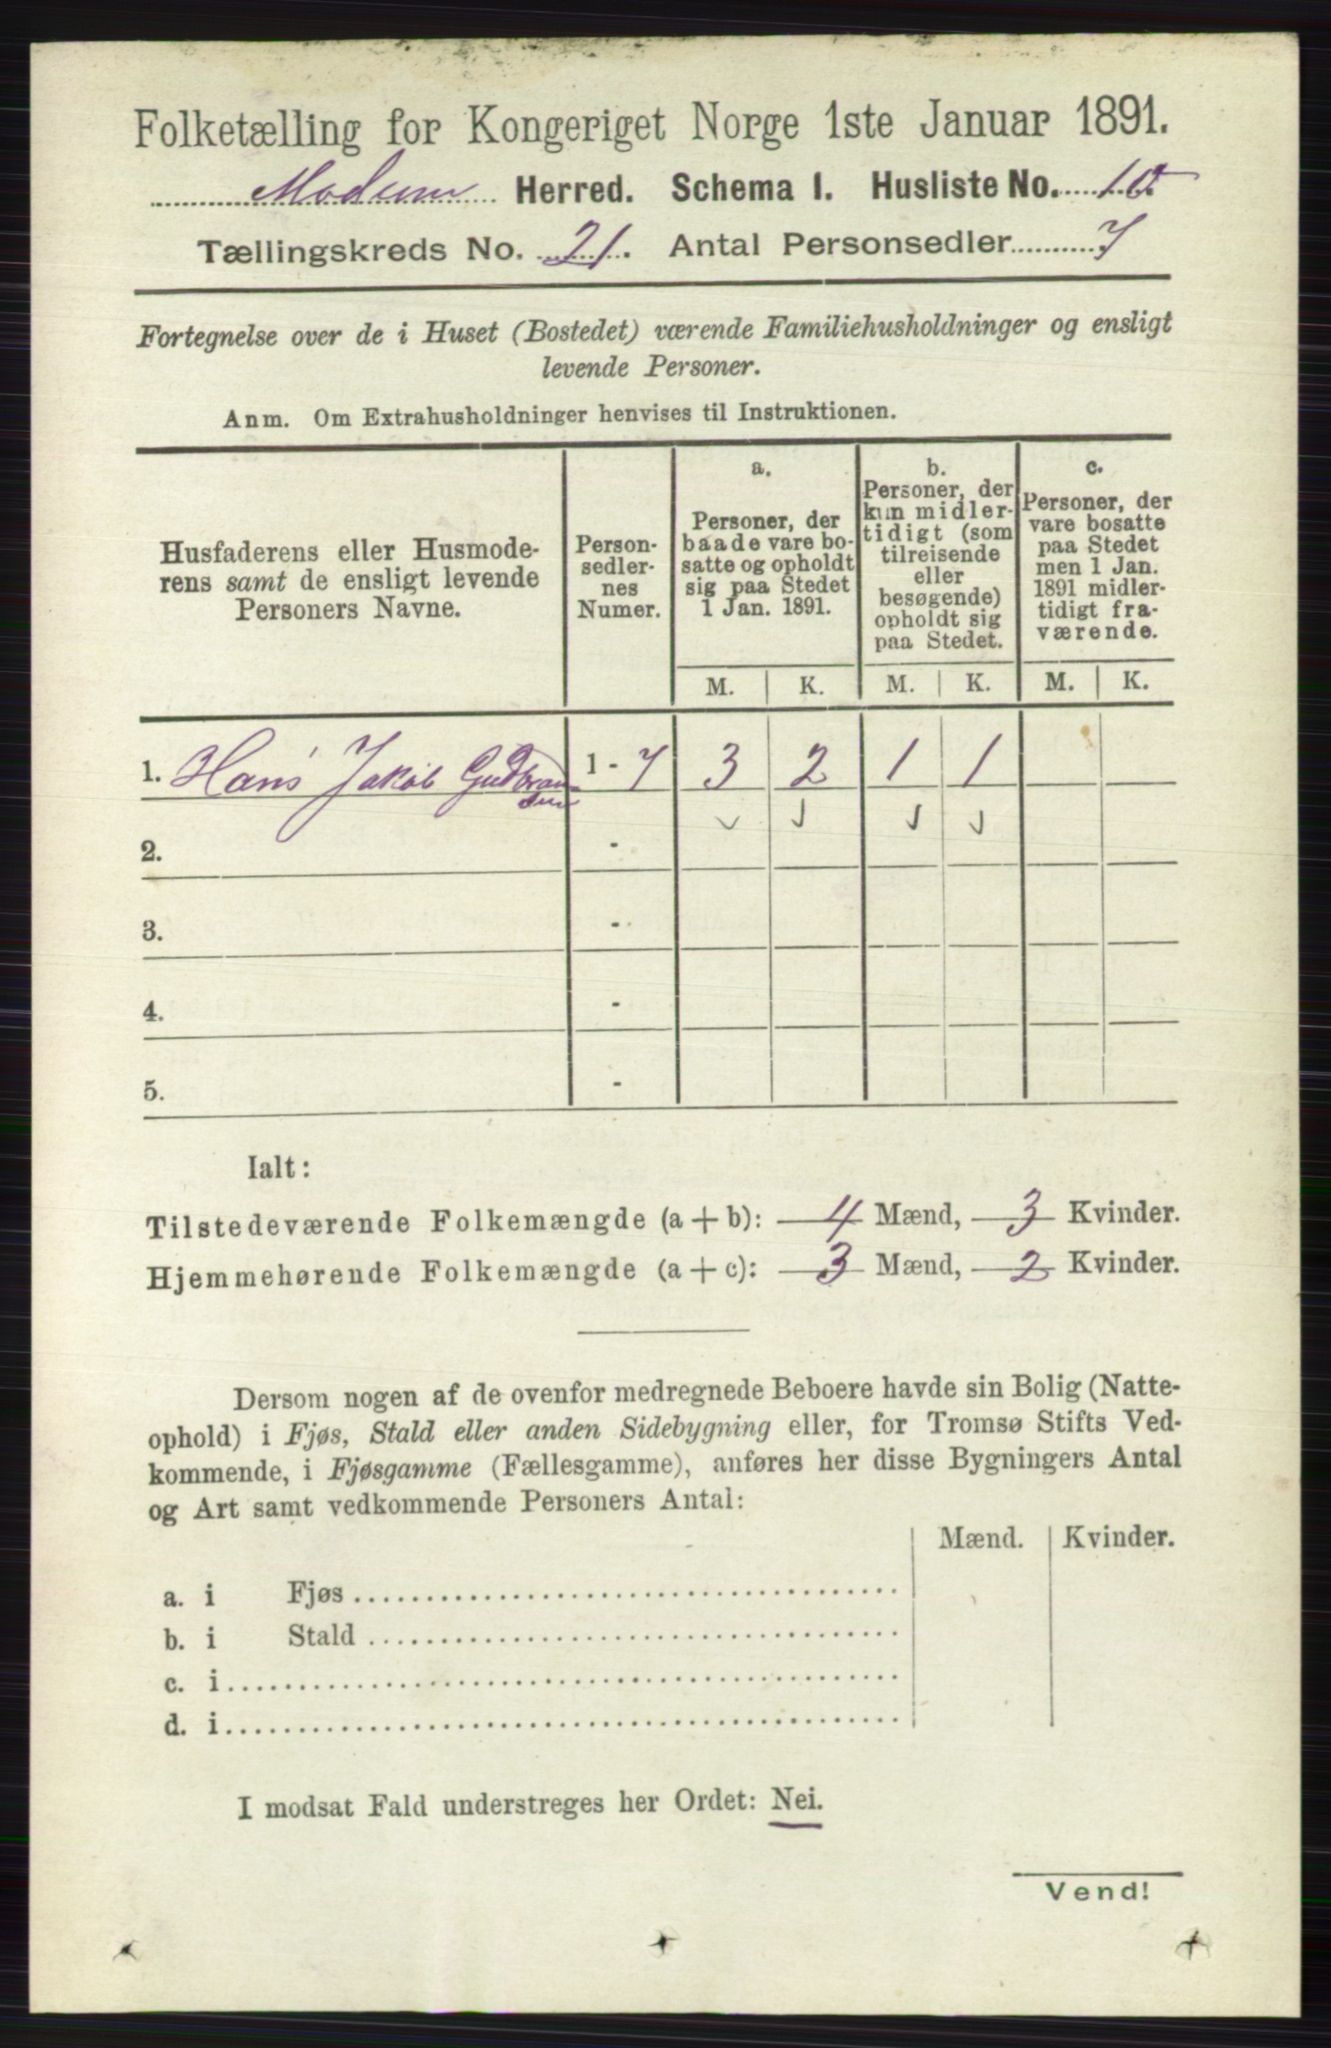 Folketælling for Kongeriget Norge 1ste Januar 1891.
Modum Herred. Schema 1. Husliste No. 10
Tællingskreds No. 21. Antal Personsedler 7
Fortegnelse over de i Huset (Bostedet) værende Familiehusholdninger og ensligt
levende Personer.
Anm. Om Extrahusholdninger henvises til Instruktionen.
Husfaderens eller Husmode-
rens samt de ensligt levende
Personers Navne.
Person-
sedler-
nes
Numer.
a.
Personer, der
baade vare bo-
satte og opholdt
sig paa Stedet
1 Jan. 1891.
b.
Personer, der
kun midler-
tidigt (som
tilreisende
eller
besøgende)
opholdt sig
paa Stedet.
c.
Personer, der
vare bosatte
paa Stedet
men 1 Jan.
1891 midler-
tidigt fra-
værende.
M. K. M. K. M. K.
1. Hans Jakob Gudbran- 1 - 7 3 2 1 1
sen
2. -
3. -
4. -
5. -
Ialt:
Tilstedeværende Folkemængde (a + b): 4 Mænd, 3 Kvinder.
Hjemmehørende Folkemængde (a + c): 3 Mænd, 2 Kvinder.
Dersom nogen af de ovenfor medregnede Beboere havde sin Bolig (Natte-
ophold) i Fjøs, Stald eller anden Sidebygning eller, for Tromsø Stifts Ved-
kommende, i Fjøsgamme (Fællesgamme), anføres her disse Bygningers Antal
og Art samt vedkommende Personers Antal:
Mænd. Kvinder.
a. i Fjøs
b. i Stald
c. i
d. i
I modsat Fald understreges her Ordet: Nei.
Vend!